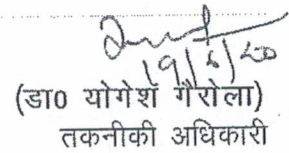 19/6/20
(डा0 योगेश गैरोला)
तकनीकी अधिकारी